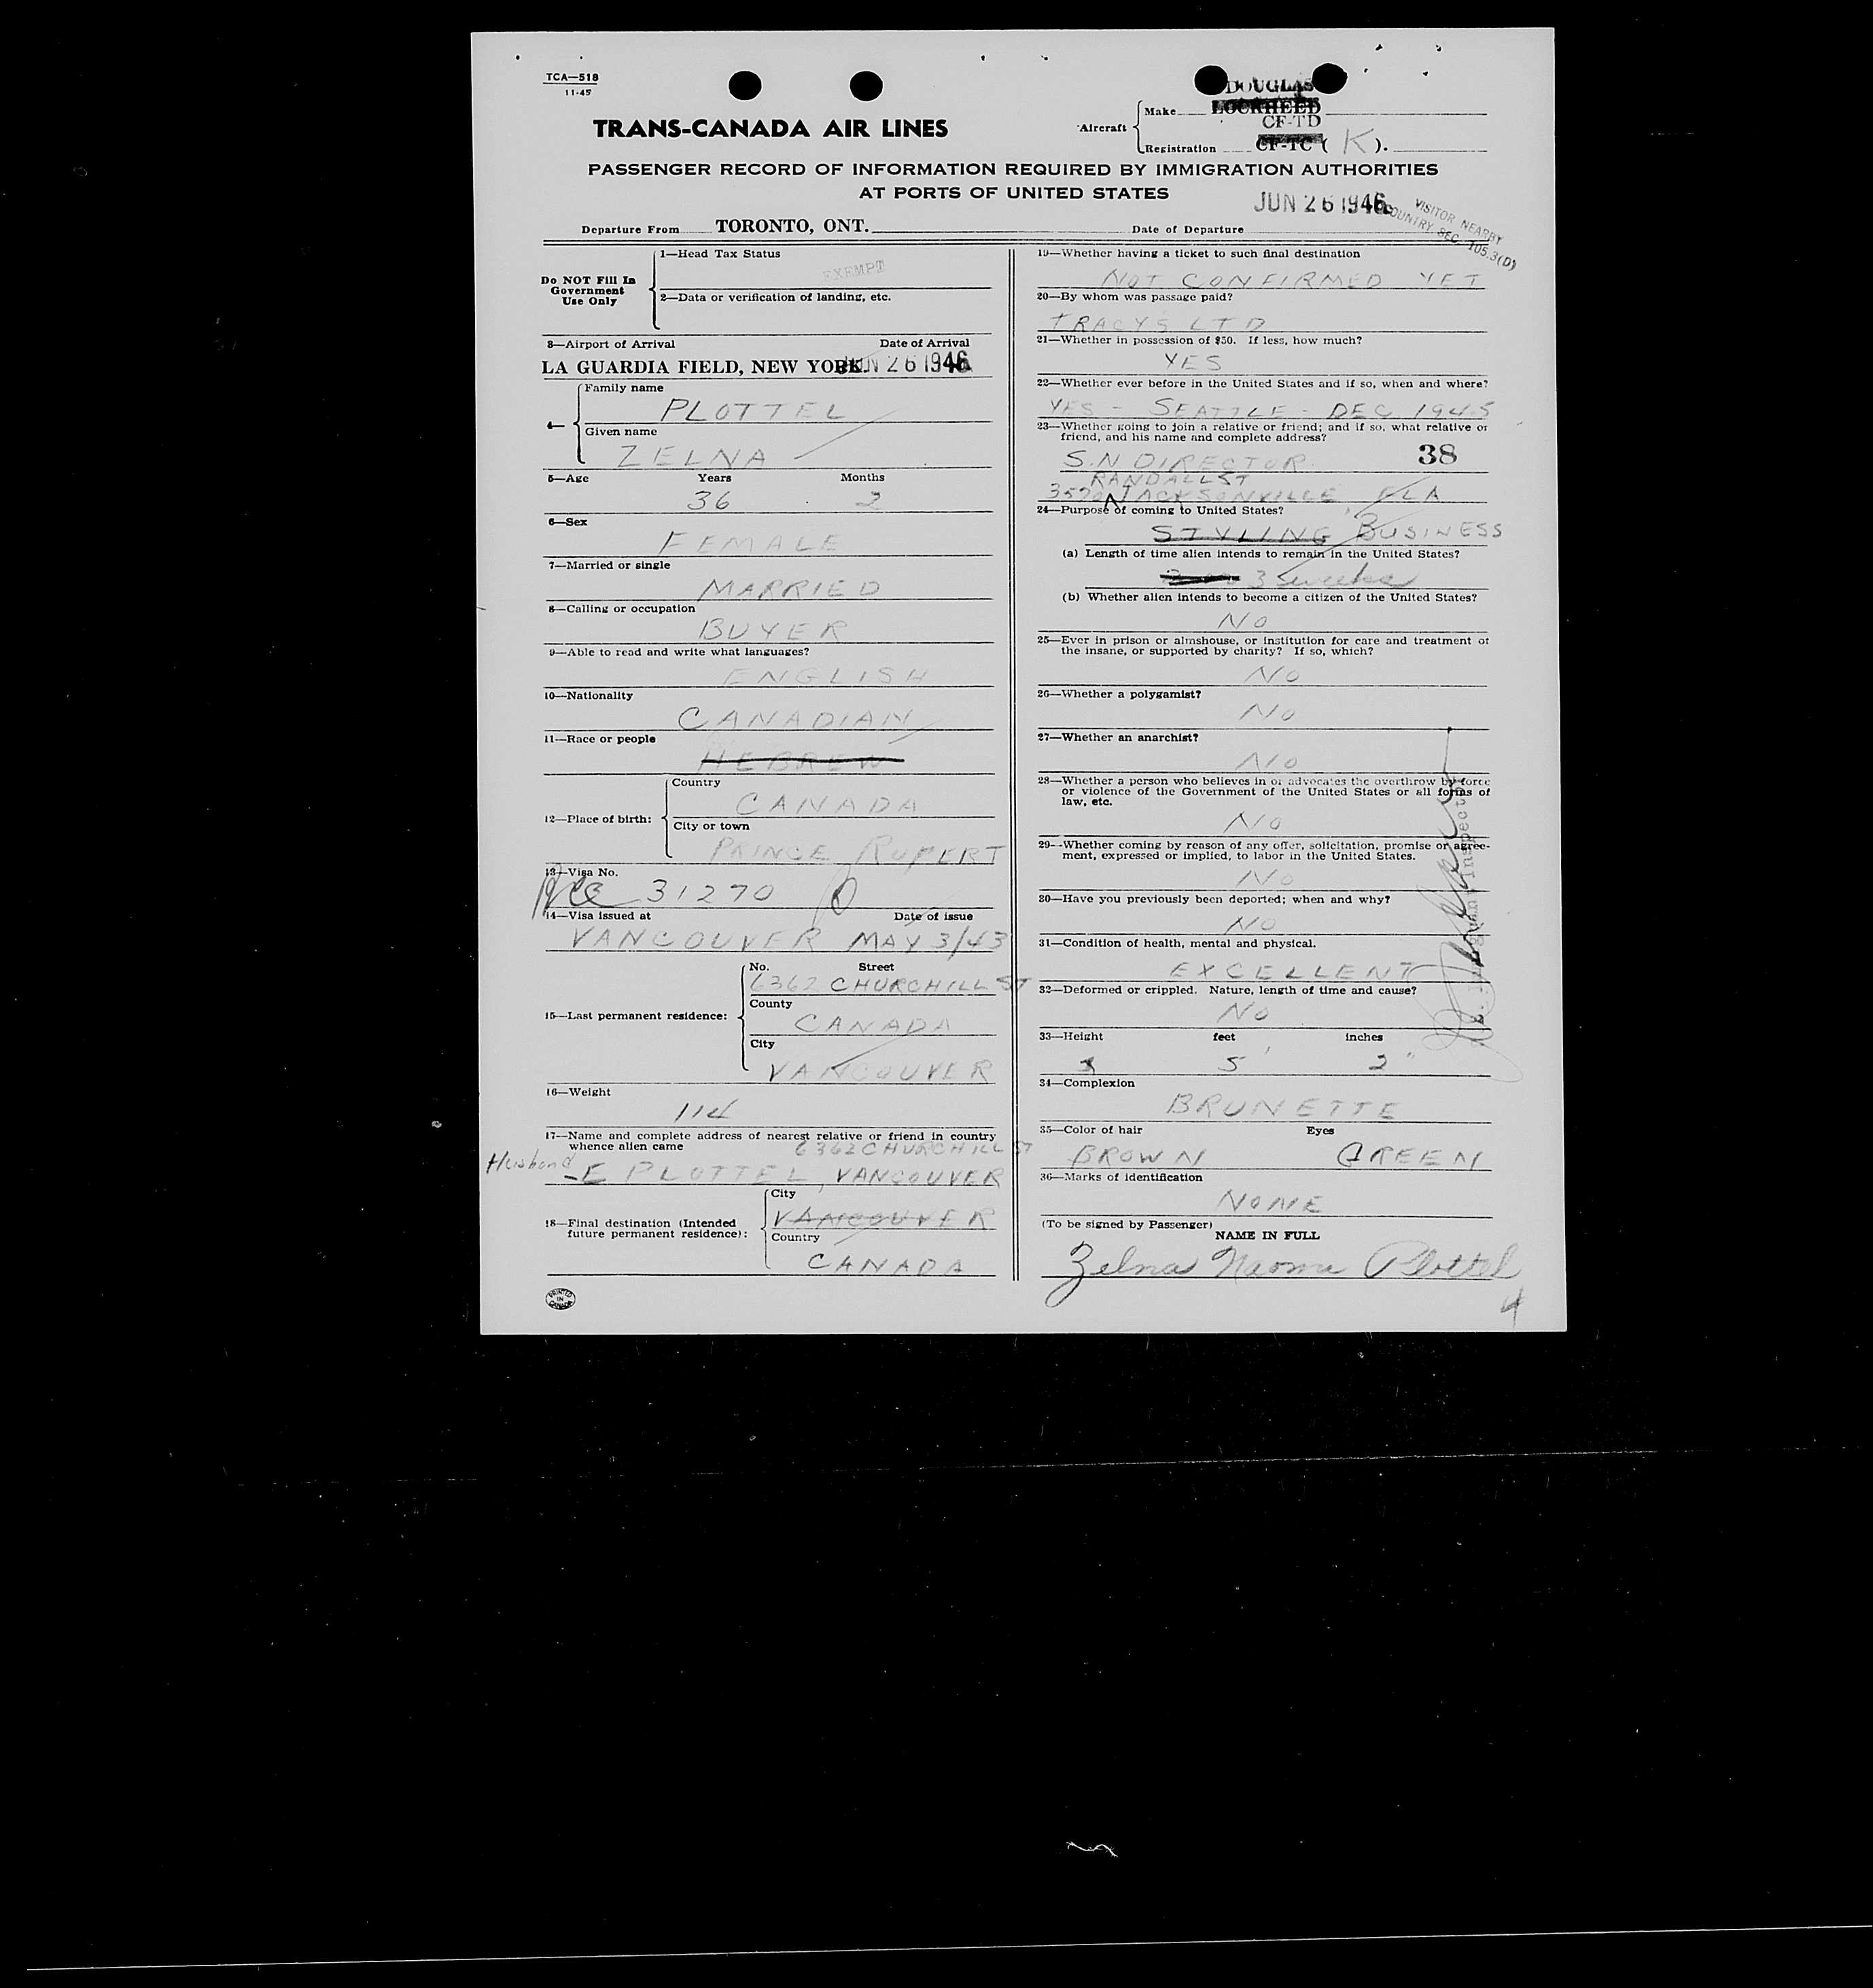 TCA—518
11-45
TRANS-CANADA AIR LINES
Aircraft
Make DOUGLAS
LOCKHEED
CF-TD
Registration CF-TC ( K ).
PASSENGER RECORD OF INFORMATION REQUIRED BY IMMIGRATION AUTHORITIES
AT PORTS OF UNITED STATES
JUN 26 1946
VISITOR NEARBY
COUNTRY SEC. 105.3(D)
Departure From TORONTO, ONT.
Date of Departure
Do NOT Fill In
Government
Use Only
1—Head Tax Status
EXEMPT
2—Data or verification of landing, etc.
3—Airport of Arrival Date of Arrival
LA GUARDIA FIELD, NEW YORK. JUN 26 1946
4—
Family name
PLOTTEL
Given name
ZELNA
5—Age Years Months
36 2
6—Sex
FEMALE
7—Married or single
MARRIED
8—Calling or occupation
BUYER
9—Able to read and write what languages?
ENGLISH
10—Nationality
CANADIAN
11—Race or people
HEBREW
12—Place of birth:
Country
CANADA
City or town
PRINCE RUPERT
13—Visa No.
31270
14—Visa issued at Date of issue
VANCOUVER MAY 3/43
15—Last permanent residence:
No. Street
6362 CHURCHILL ST
County
CANADA
City
VANCOUVER
16—Weight
114
17—Name and complete address of nearest relative or friend in country
whence alien came
6362 CHURCHILL ST
Husband - E PLOTTEL, VANCOUVER
18—Final destination (Intended
future permanent residence):
City
VANCOUVER
Country
CANADA
PRINTED
IN
CANADA
19—Whether having a ticket to such final destination
NOT CONFIRMED YET
20—By whom was passage paid?
TRACY'S LTD
21—Whether in possession of $50. If less, how much?
YES
22—Whether ever before in the United States and if so, when and where?
YES - SEATTLE - DEC 1945
23—Whether going to join a relative or friend; and if so, what relative or
friend, and his name and complete address?
S.N DIRECTOR 38
RANDALL ST
3570 JACKSONVILLE FLA
24—Purpose of coming to United States?
STYLING BUSINESS
(a) Length of time alien intends to remain in the United States?
3 weeks
(b) Whether alien intends to become a citizen of the United States?
NO
25—Ever in prison or almshouse, or institution for care and treatment of
the insane, or supported by charity? If so, which?
NO
26—Whether a polygamist?
NO
27—Whether an anarchist?
NO
28—Whether a person who believes in or advocates the overthrow by force
or violence of the Government of the United States or all forms of
law, etc.
NO
29—Whether coming by reason of any offer, solicitation, promise or agree-
ment, expressed or implied, to labor in the United States.
NO
30—Have you previously been deported; when and why?
NO
31—Condition of health, mental and physical.
EXCELLENT
32—Deformed or crippled. Nature, length of time and cause?
NO
33—Height feet inches
5' 2"
34—Complexion
BRUNETTE
35—Color of hair Eyes
BROWN GREEN
36—Marks of identification
NONE
(To be signed by Passenger)
NAME IN FULL
Zelna Naomi Plottel
4